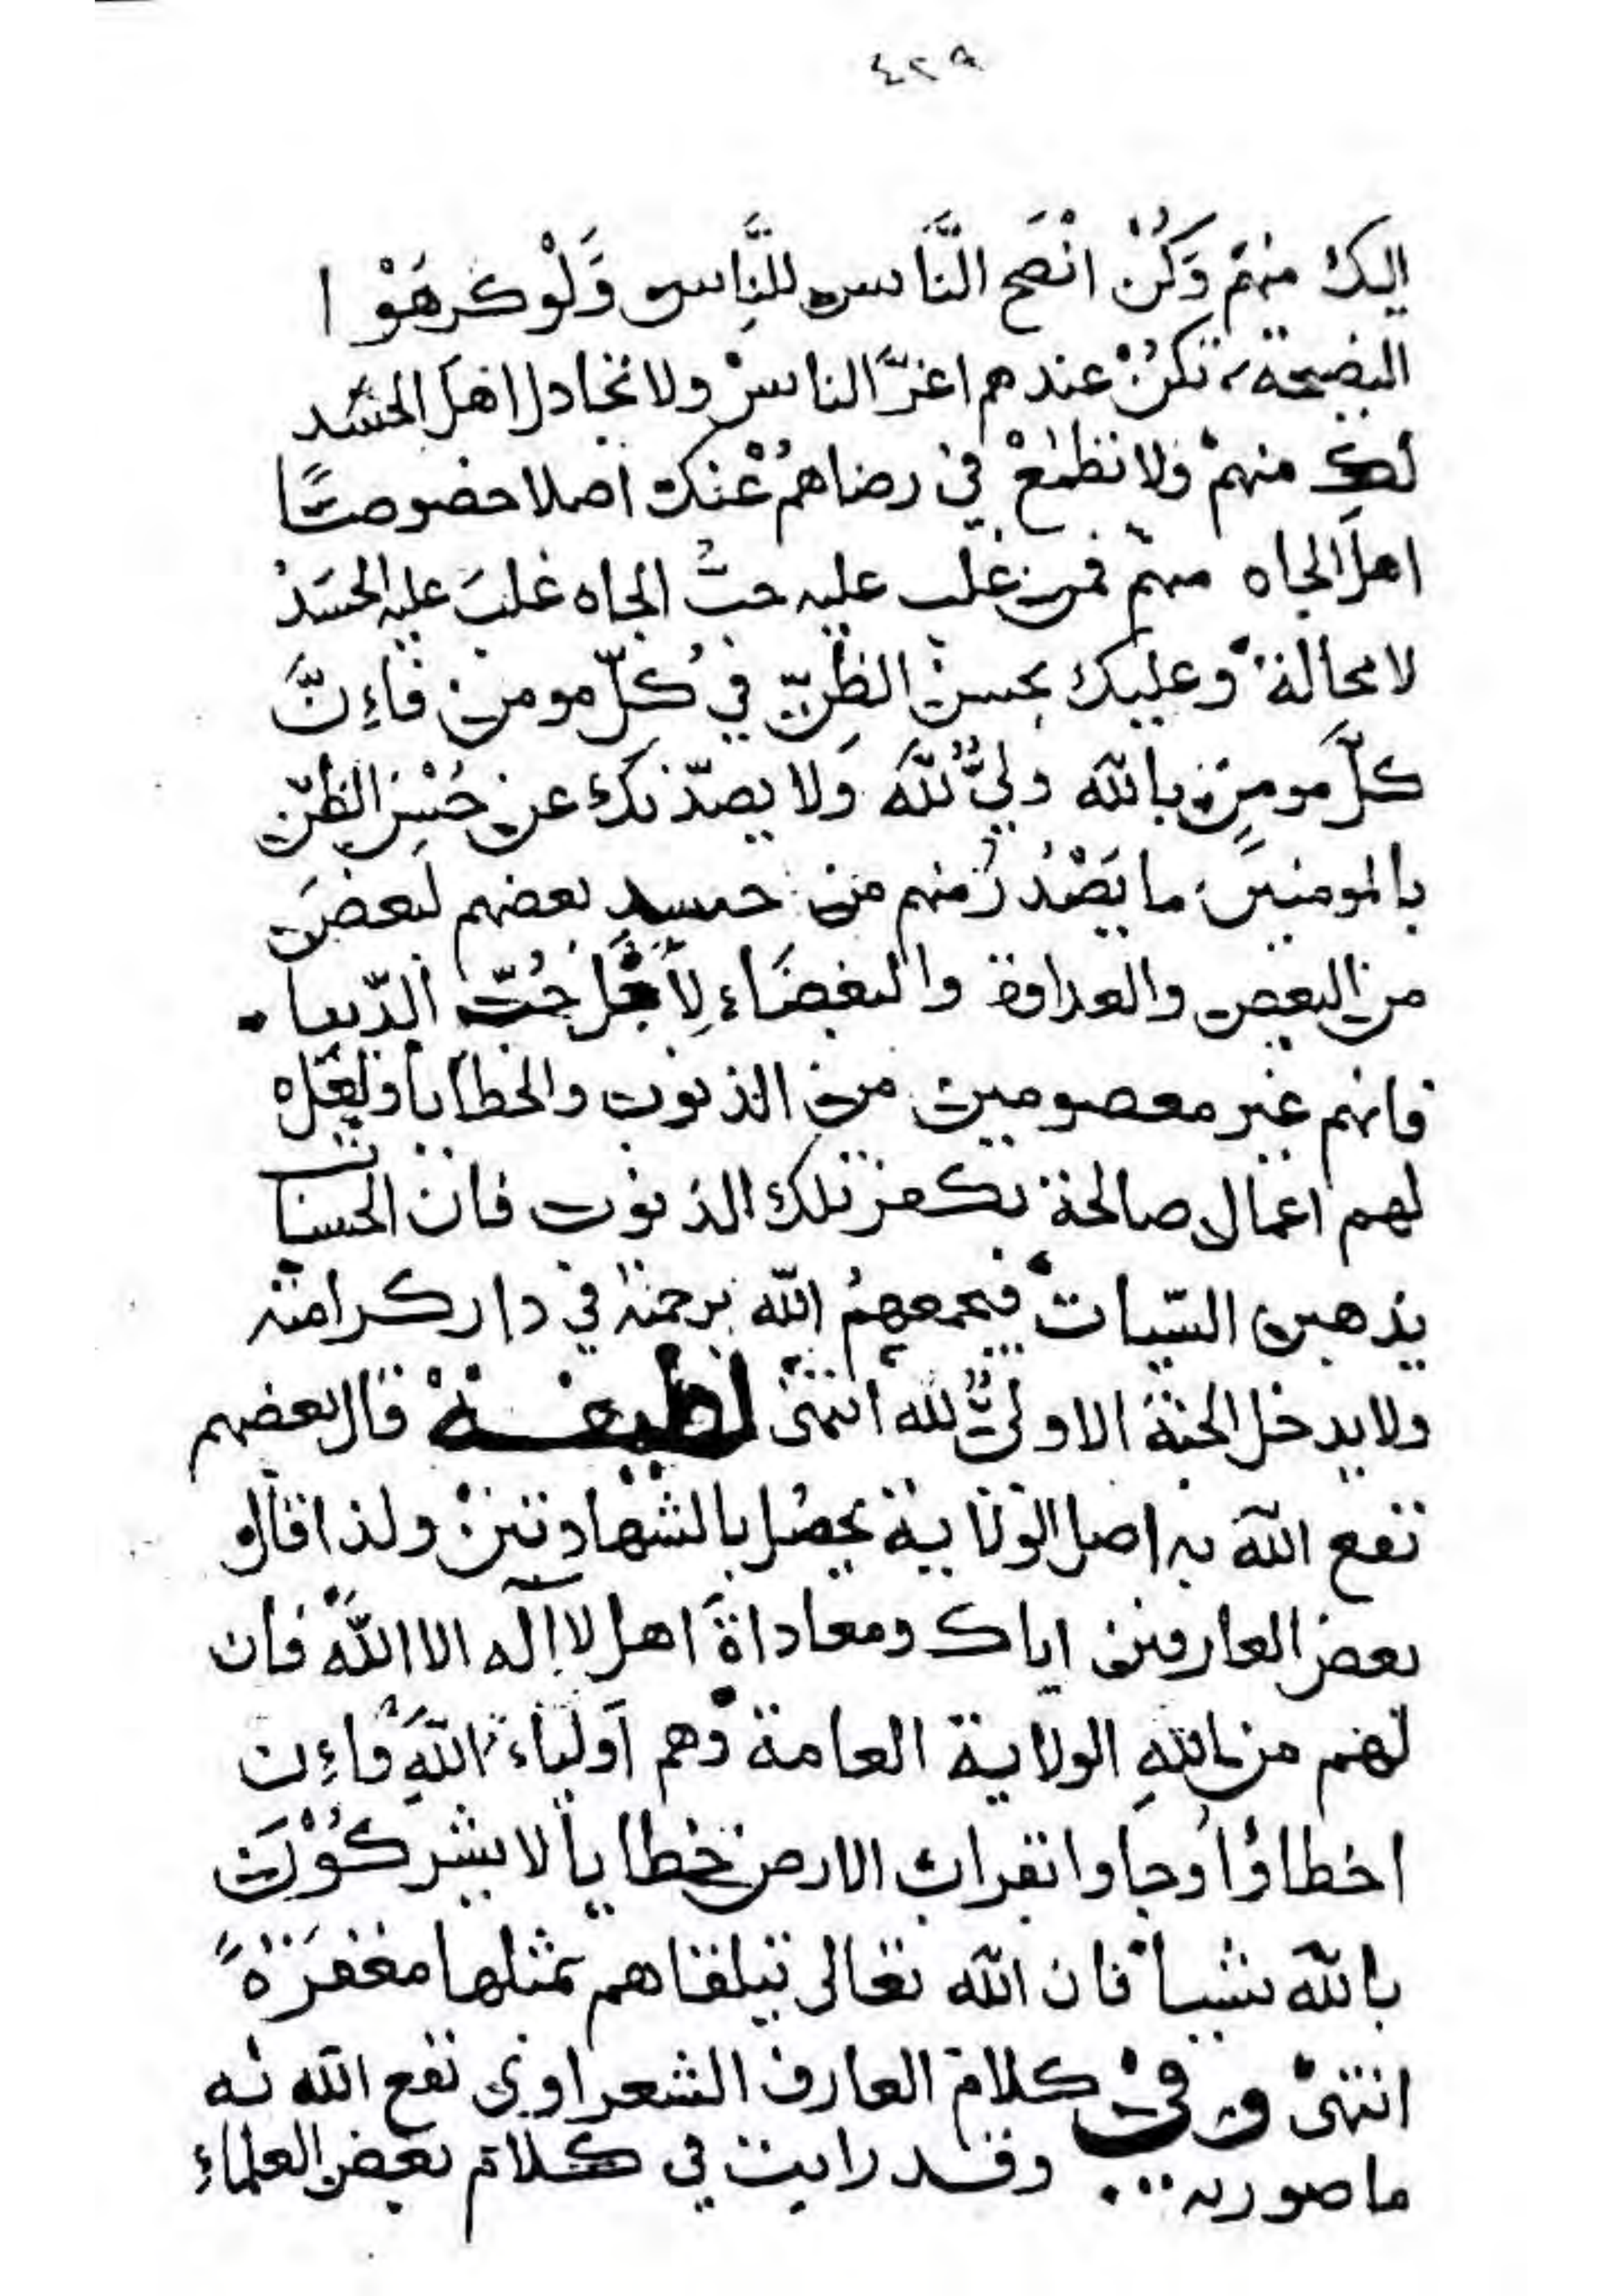 ٤٢٩
اليك منهم وَكُنْ انْصَح النَّاس للنَّاسِ وَلَوْ كرهَوْا
النصيحة تكنْ عندهم اعزّ الناسْ ولا تجادل اهل الحسد
لك منهمْ ولا تطمعْ في رضاهمُ عْنك اصلا خصوصًا
اهلَ الجاه منهم فمن غلب عليه حبُّ الجاه غلبَ عليه الحسَدُ
لا محالة وعليك بحسن الظنِّ في كُلّ مومن فاءِنَّ
كلَّ مومنٍ بالله وليٌّ للّه ولا يصدّنك عن حُسْنِ الظنّ
بالمومنينَ ما يَصْدُرُ منهم من حسدِ بعضهم لبعضٍ
من البعض والعداوة والبغضَاء لِأَجْل حُبّ الدّنيا
فانهم غير معصومين من الذنوب والخطايا ولعَلَه
لهم اعمال صالحة تكفر تلك الذنوب فان الحسنات
يذهبن السّيات فيجمعهمُ اللّه برحمته في دار كرامته
ولا يدخل الجنة الا وليٌّ لله انتهى لطيفة قال بعضهم
نفع اللّه به اصل الولاية يحصُل بالشهادتينْ ولذا قال
بعض العارفين اياك ومعاداةَ اهل لا اله الا اللّه فان
لهم من اللهِ الولاية العامة وهم اَولياء اللّهِ فاءِن
اخطاؤا وجاوا بقراب الارض خطايا لا يشركُوْنَ
باللّه شيأ فان اللّه تعالى يتلقاهم بمثلها مغفرَةً
انتهى وفي كلام العارف الشعراوي نفع اللّه به
ما صورته وقد رايت في كلام بعض العلماءِ